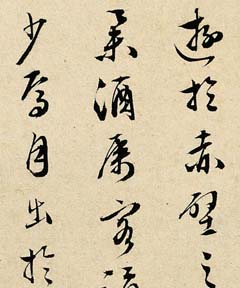 遊於赤壁之
舉酒屬客誦
少焉月出於